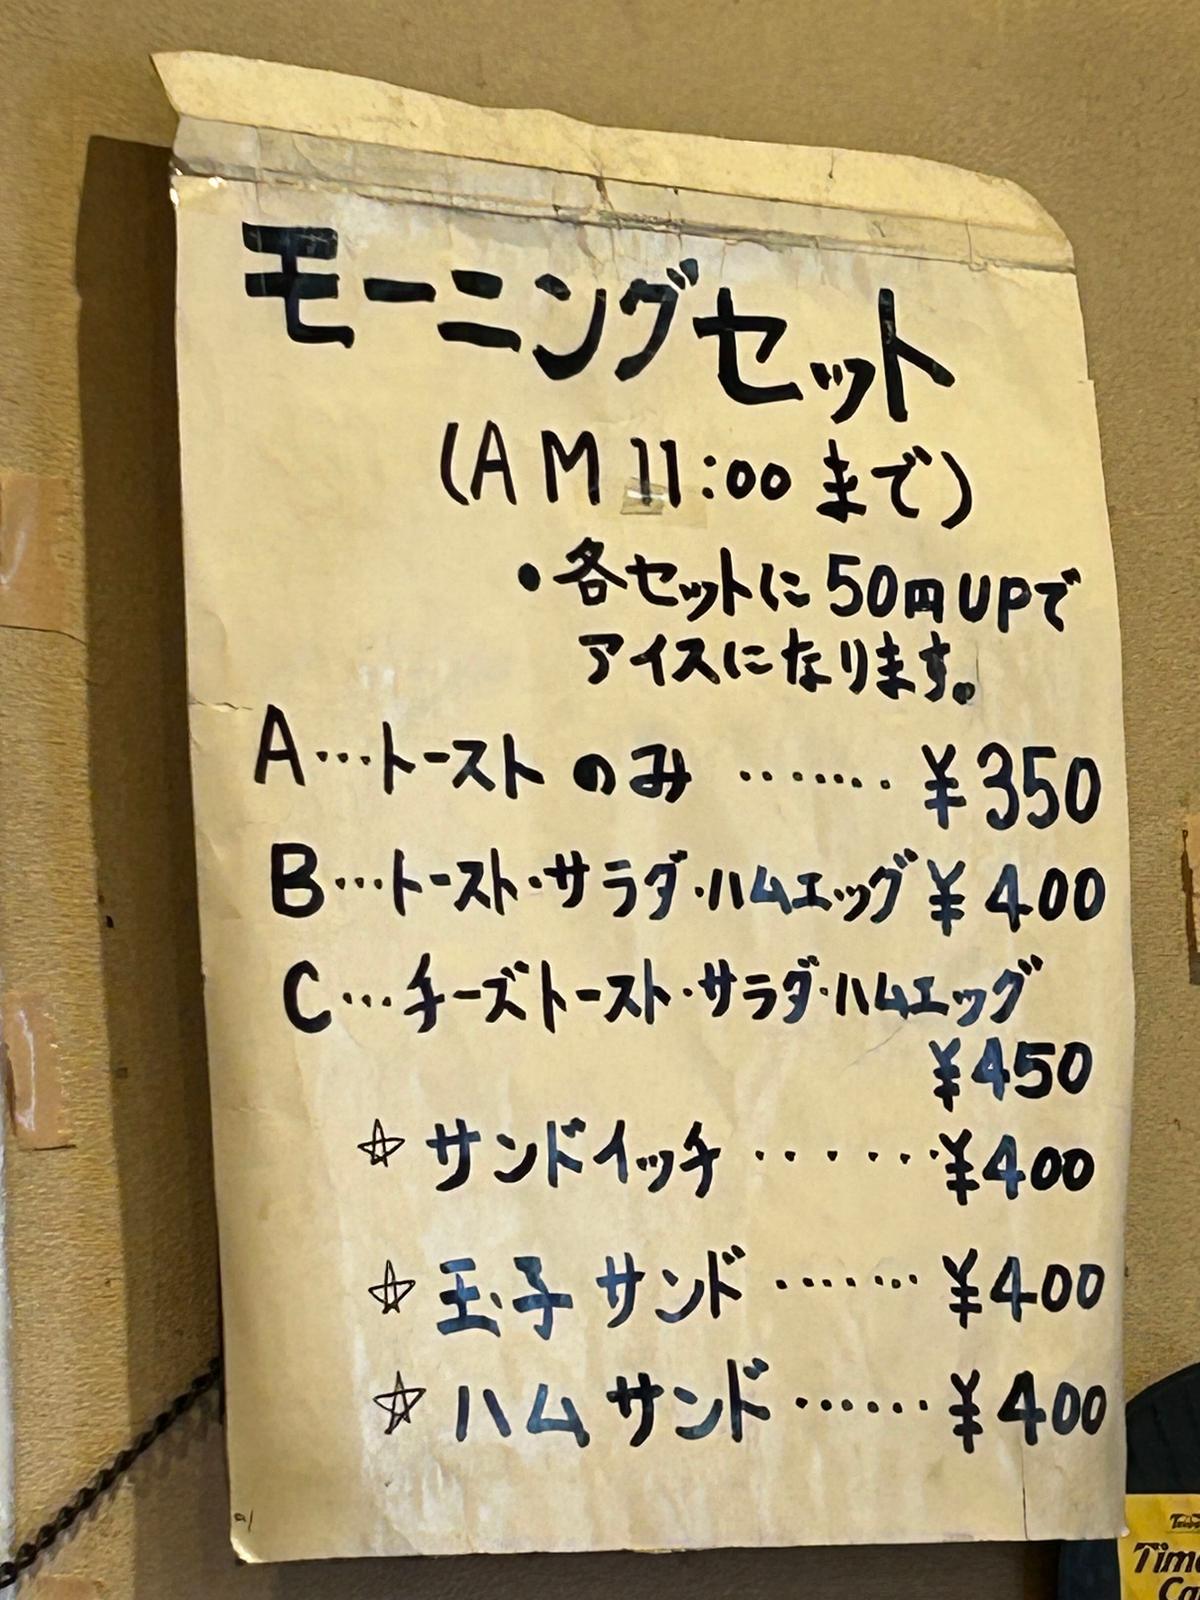 モーニングセット
(AM 11:00 まで)
・各セットに 50円UPで
アイスになります。
A…トーストのみ ……. ¥350
B…トースト・サラダ・ハムエッグ ¥400
C…チーズトースト・サラダ・ハムエッグ
¥450
☆ サンドイッチ ・・・・・・ ¥400
☆ 玉子サンド ……. ¥400
☆ ハムサンド …… ¥400